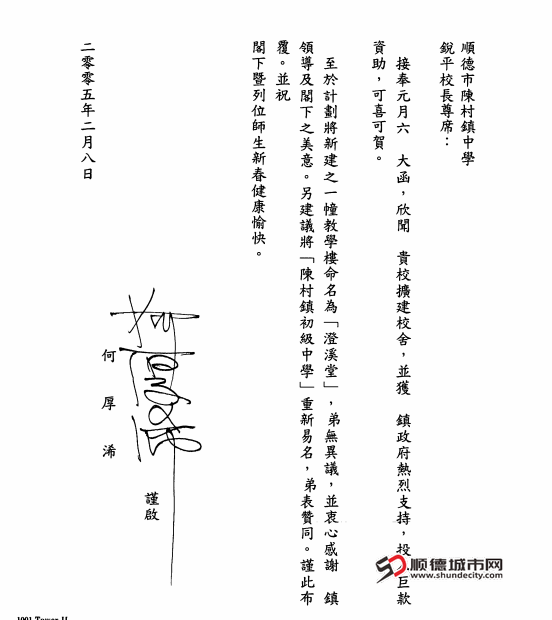 順德市陳村鎮中學
銳平校長尊席：
接奉元月六 大函，欣聞 貴校擴建校舍，並獲 鎮政府熱烈支持，投 巨款
資助，可喜可賀。
至於計劃將新建之一幢教學樓命名為「澄溪堂」，弟無異議，並衷心感謝 鎮
領導及閣下之美意。另建議將「陳村鎮初級中學」重新易名，弟表贊同。謹此布
覆。並祝
閣下暨列位師生新春健康愉快。
何厚浠
謹啟
二零零五年二月八日
顺德城市网
www.shundecity.com
1001 Tower II